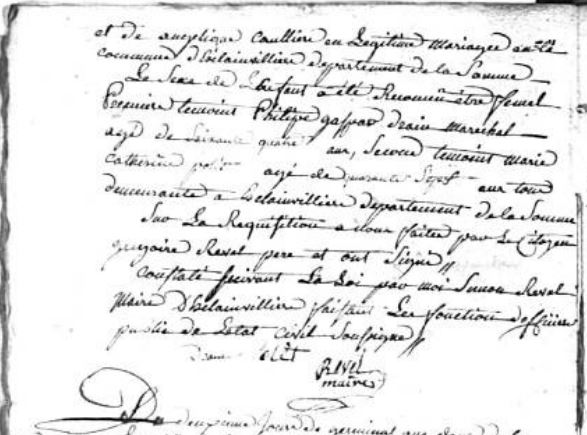 et de angelique caulliere en Legitime mariagee en
commune d'hélainvillier departement de la Somme
Le Sexe de L'enfant a été Reconnu être femel
Premiere temoint Philipe gaspar drain marechal
agé de Soixante quatre ans, Second temoint marie
Catherine agé de quarante Sept ans tous
demeurante a helainvillier departement de la Somme
Sur La Requisition a nous faitee par Le Citoyen
gregoire Revel pere et ont Signé
Constaté Suivant La Loi par moi Simon Revel
Maire d'helainvillier faisant Les fonction d'officier
public de Letat civil Soussigné
REVEL
maire
Du deuxieme Jour de germinal an